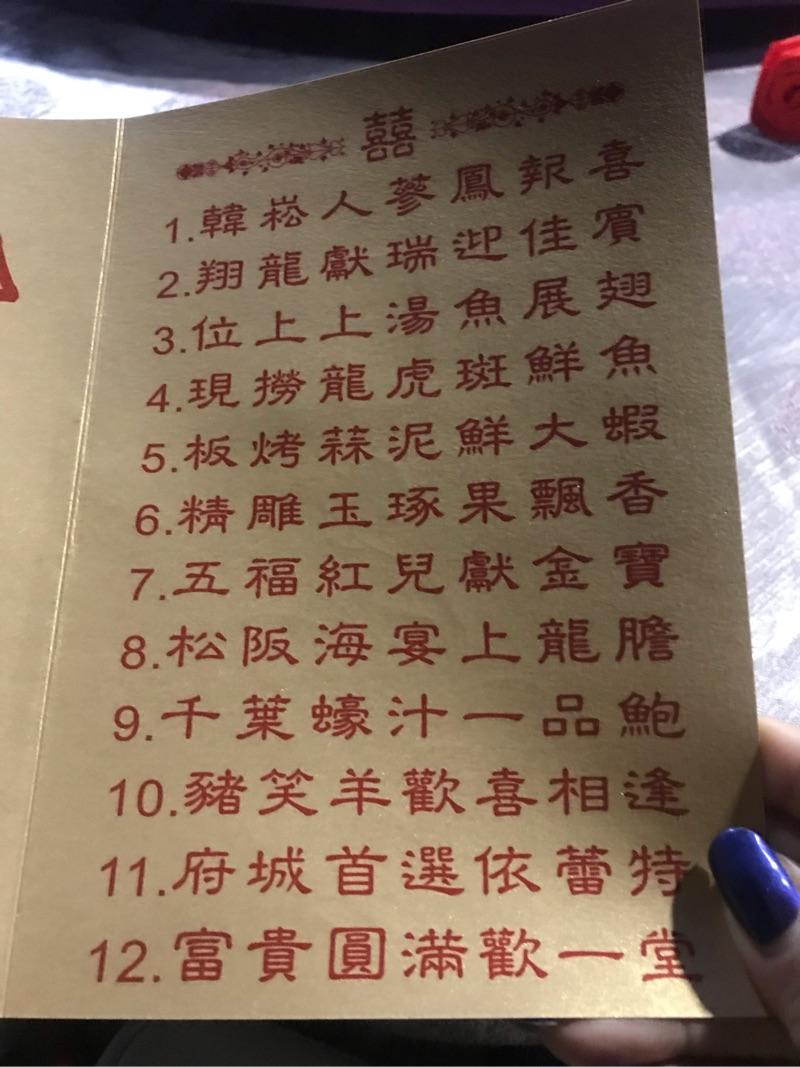 囍
1.韓崧人蔘鳳報喜
2.翔龍獻瑞迎佳賓
3.位上上湯魚展翅
4.現撈龍虎斑鮮魚
5.板烤蒜泥鮮大蝦
6.精雕玉琢果飄香
7.五福紅兒獻金寶
8.松阪海宴上龍膽
9.千葉蠔汁一品鮑
10.豬笑羊歡喜相逢
11.府城首選依蕾特
12.富貴圓滿歡一堂